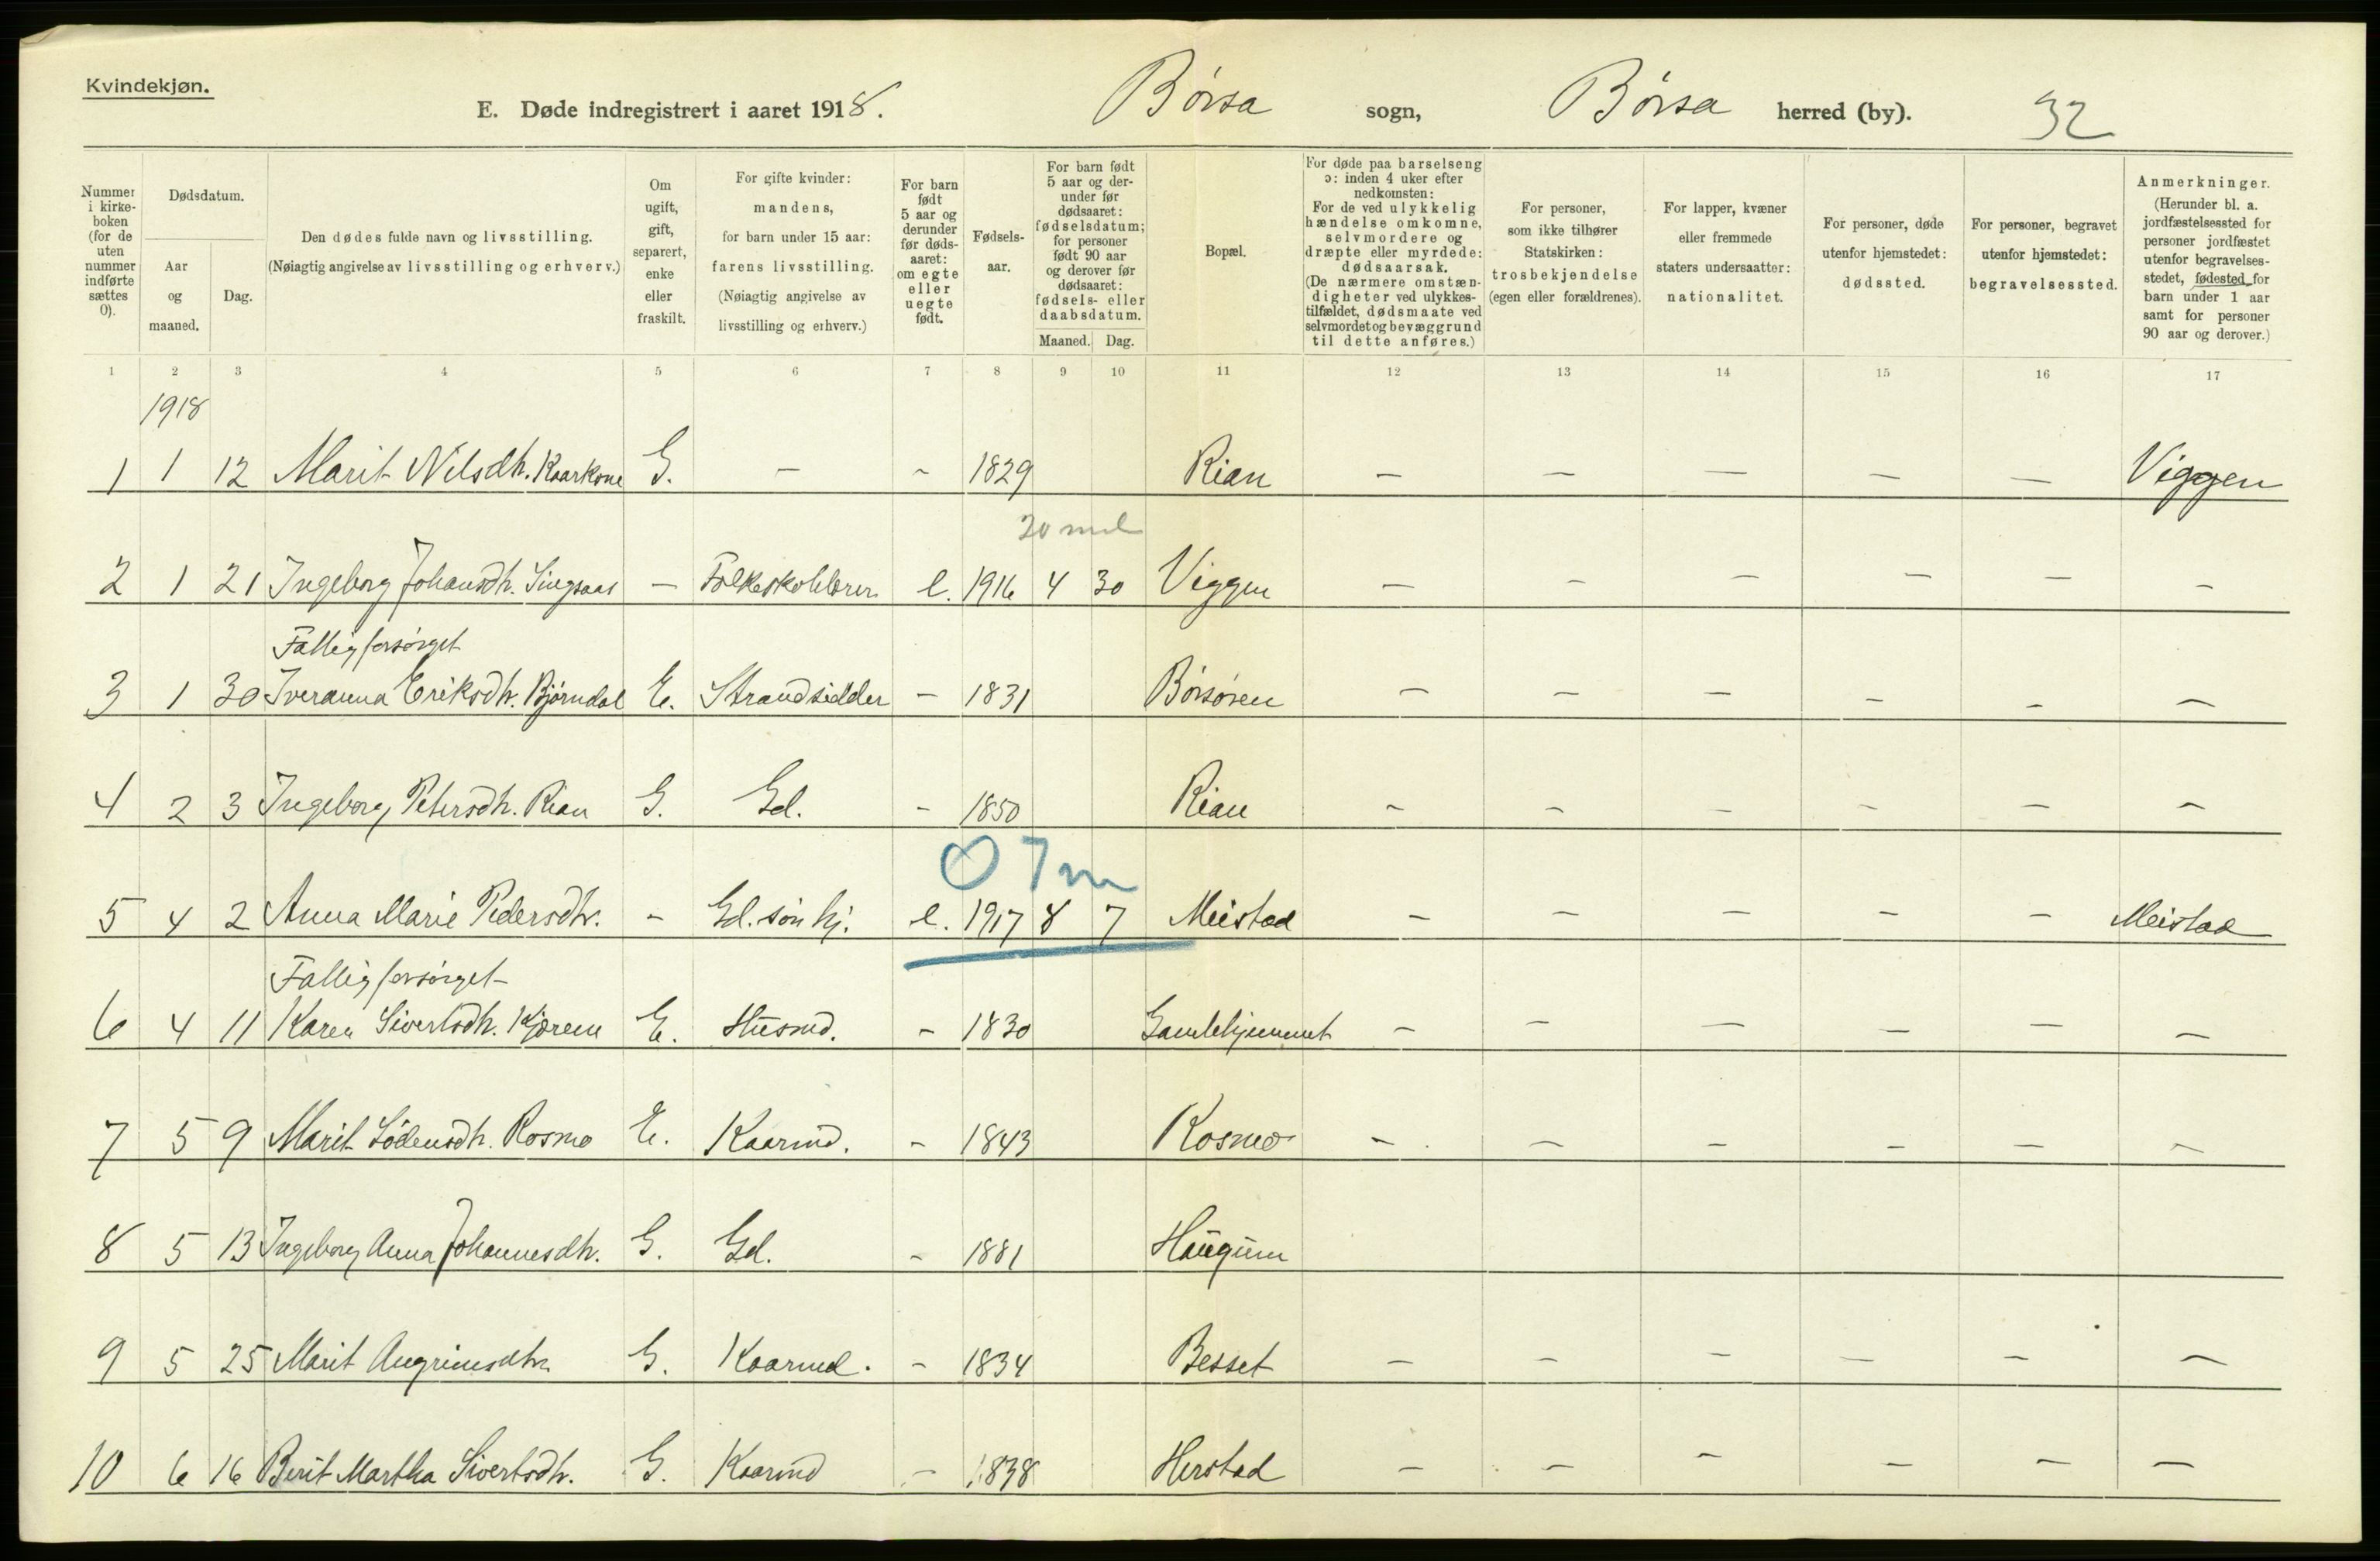 Kvindekjøn.
E. Døde indregistrert i aaret 1918. Børsa sogn, Børsa herred (by). 32
Nummer i kirkeboken (for de uten nummer indførte sættes 0).
Dødsdatum.
Aar og maaned.
Dag.
Den dødes fulde navn og livsstilling.
(Nøiagtig angivelse av livsstilling og erhverv.)
Om ugift, gift, separert, enke eller fraskilt.
For gifte kvinder: mandens, for barn under 15 aar: farens livsstilling. (Nøiagtig angivelse av livsstilling og erhverv.)
For barn født 5 aar og derunder før dødsaaret: om egte eller uegte født.
Fødselsaar.
For barn født 5 aar og derunder før dødsaaret: fødselsdatum; for personer født 90 aar og derover før dødsaaret: fødsels- eller daabsdatum.
Maaned. Dag.
Bopæl.
For døde paa barselseng ɔ: inden 4 uker efter nedkomsten: For de ved ulykkelig hændelse omkomne, selvmordere og dræpte eller myrdede: dødsaarsak. (De nærmere omstændigheter ved ulykkestilfældet, dødsmaate ved selvmordet og bevæggrund til dette anføres.)
For personer, som ikke tilhører Statskirken: trosbekjendelse (egen eller forældrenes).
For lapper, kvæner eller fremmede staters undersaatter: nationalitet.
For personer, døde utenfor hjemstedet: dødssted.
For personer, begravet utenfor hjemstedet: begravelsessted.
Anmerkninger. (Herunder bl. a. jordfæstelsessted for personer jordfæstet utenfor begravelsesstedet, fødested for barn under 1 aar samt for personer 90 aar og derover.)
1 2 3 4 5 6 7 8 9 10 11 12 13 14 15 16 17
1918
1 1 12 Marit Nilsdtr. Kaarkone G. – – 1829 Rian – – – – – Viggen
20 mnd
2 1 21 Ingeborg Johansdtr. Singsaas – Folkeskolelærer e. 1916 4 30 Viggen – – – – – –
Fattigforsørget
3 1 30 Iveranna Eriksdtr. Bjørndal E. Strandsidder – 1831 Børsøren – – – – – –
4 2 3 Ingeborg Petersdtr. Rian G. Gd. – 1850 Rian – – – – – –
0 7 m
5 4 2 Anna Marie Pedersdtr. – Gd. søn hj. e. 1917 8 7 Meistad – – – – – Meistad
Fattigforsørget
6 4 11 Karen Sivertsdtr. Kjørem E. Husmd. – 1830 Gamlehjemmet – – – – – –
7 5 9 Marit Sødensdtr. Rosmo E. Kaarmd. – 1843 Rosmo – – – – – –
8 5 13 Ingeborg Anna Johannesdtr. G. Gd. – 1881 Haugum
9 5 25 Marit Angrimsdtr. G. Kaarmd. – 1834 Besset – – – – – –
10 6 16 Berit Martha Sivertsdtr. G. Kaarmd – 1838 Herstad – – – – – –